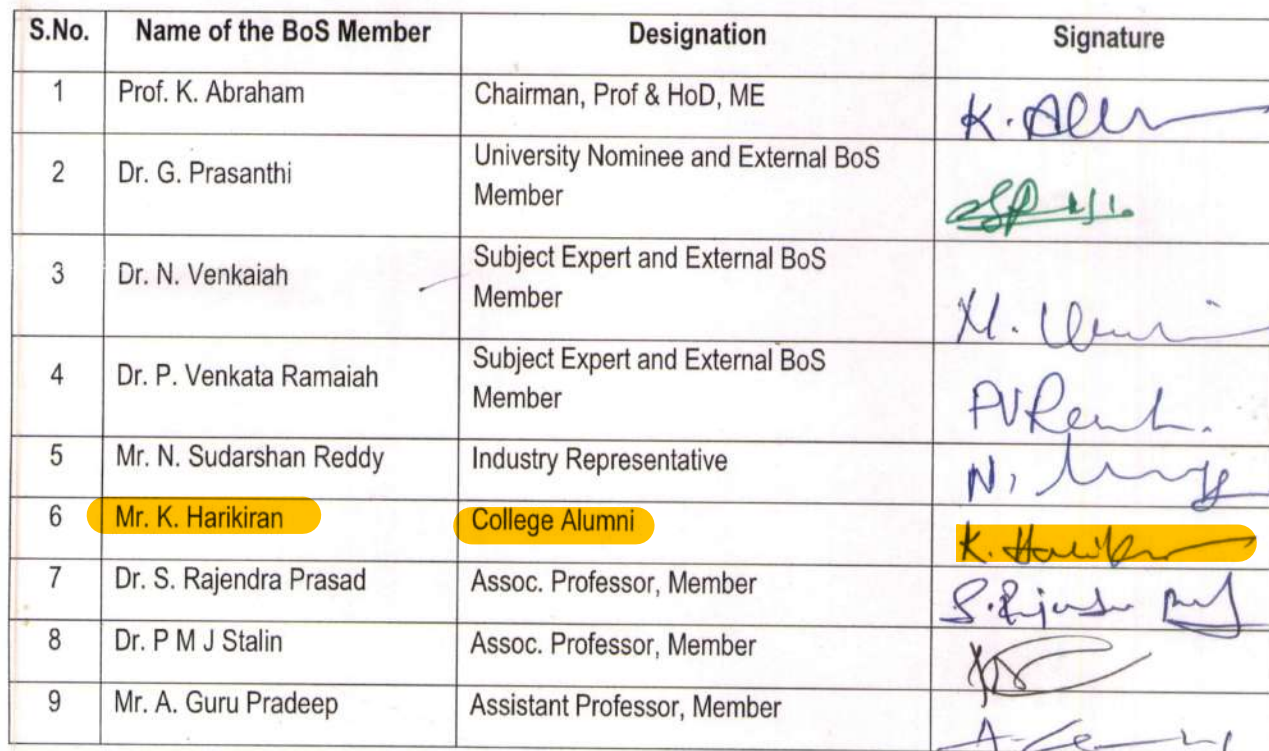 S.No. Name of the BoS Member Designation Signature
1 Prof. K. Abraham Chairman, Prof & HoD, ME
2 Dr. G. Prasanthi University Nominee and External BoS
Member
3 Dr. N. Venkaiah Subject Expert and External BoS
Member
4 Dr. P. Venkata Ramaiah Subject Expert and External BoS
Member
5 Mr. N. Sudarshan Reddy Industry Representative
6 Mr. K. Harikiran College Alumni
7 Dr. S. Rajendra Prasad Assoc. Professor, Member
8 Dr. P M J Stalin Assoc. Professor, Member
9 Mr. A. Guru Pradeep Assistant Professor, Member